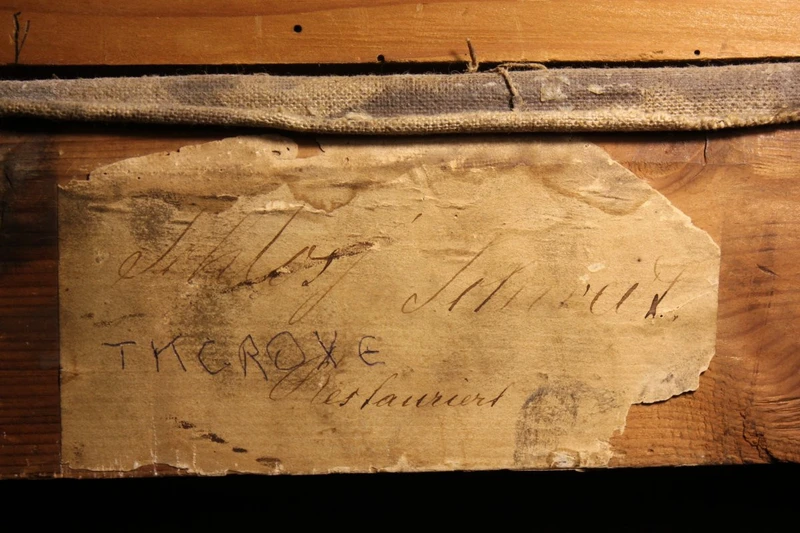 Schloß Schweid
TKCROXE
Restauriert